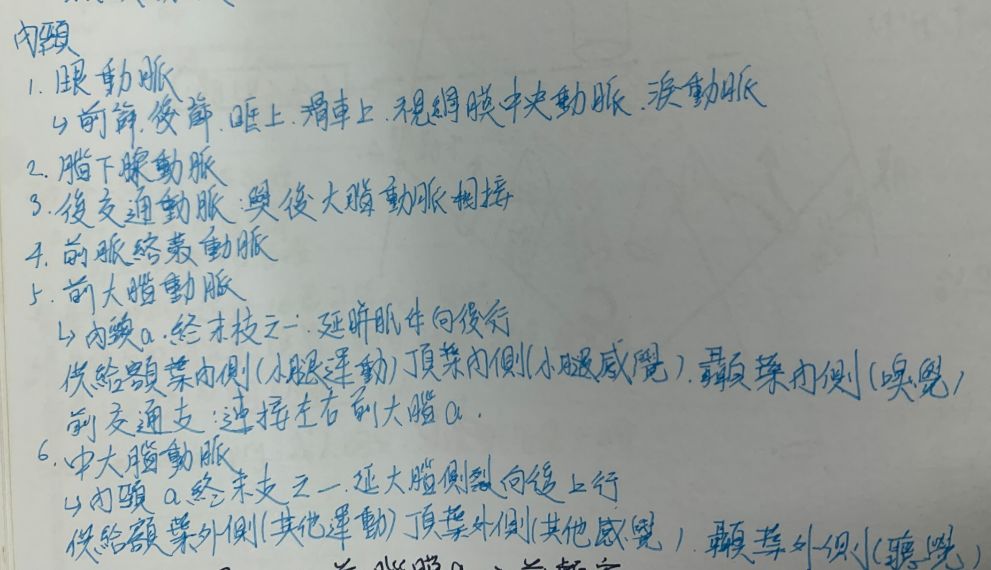 內頸
1. 眼動脈
↳前篩.後篩.眶上.滑車上.視網膜中央動脈.淚動脈
2. 腦下腺動脈
3. 後交通動脈:與後大腦動脈相接
4. 前脈絡叢動脈
5. 前大腦動脈
↳內頸a.終末枝之一.延胼胝体向後行
供給額葉內側(小腿運動)頂葉內側(小腿感覺).顳葉內側(嗅覺)
前交通支:連接左右前大腦a.
6. 中大腦動脈
↳內頸a終末支之一.延大腦側裂向後上行
供給額葉外側(其他運動)頂葉外側(其他感覺).顳葉外側(聽覺)